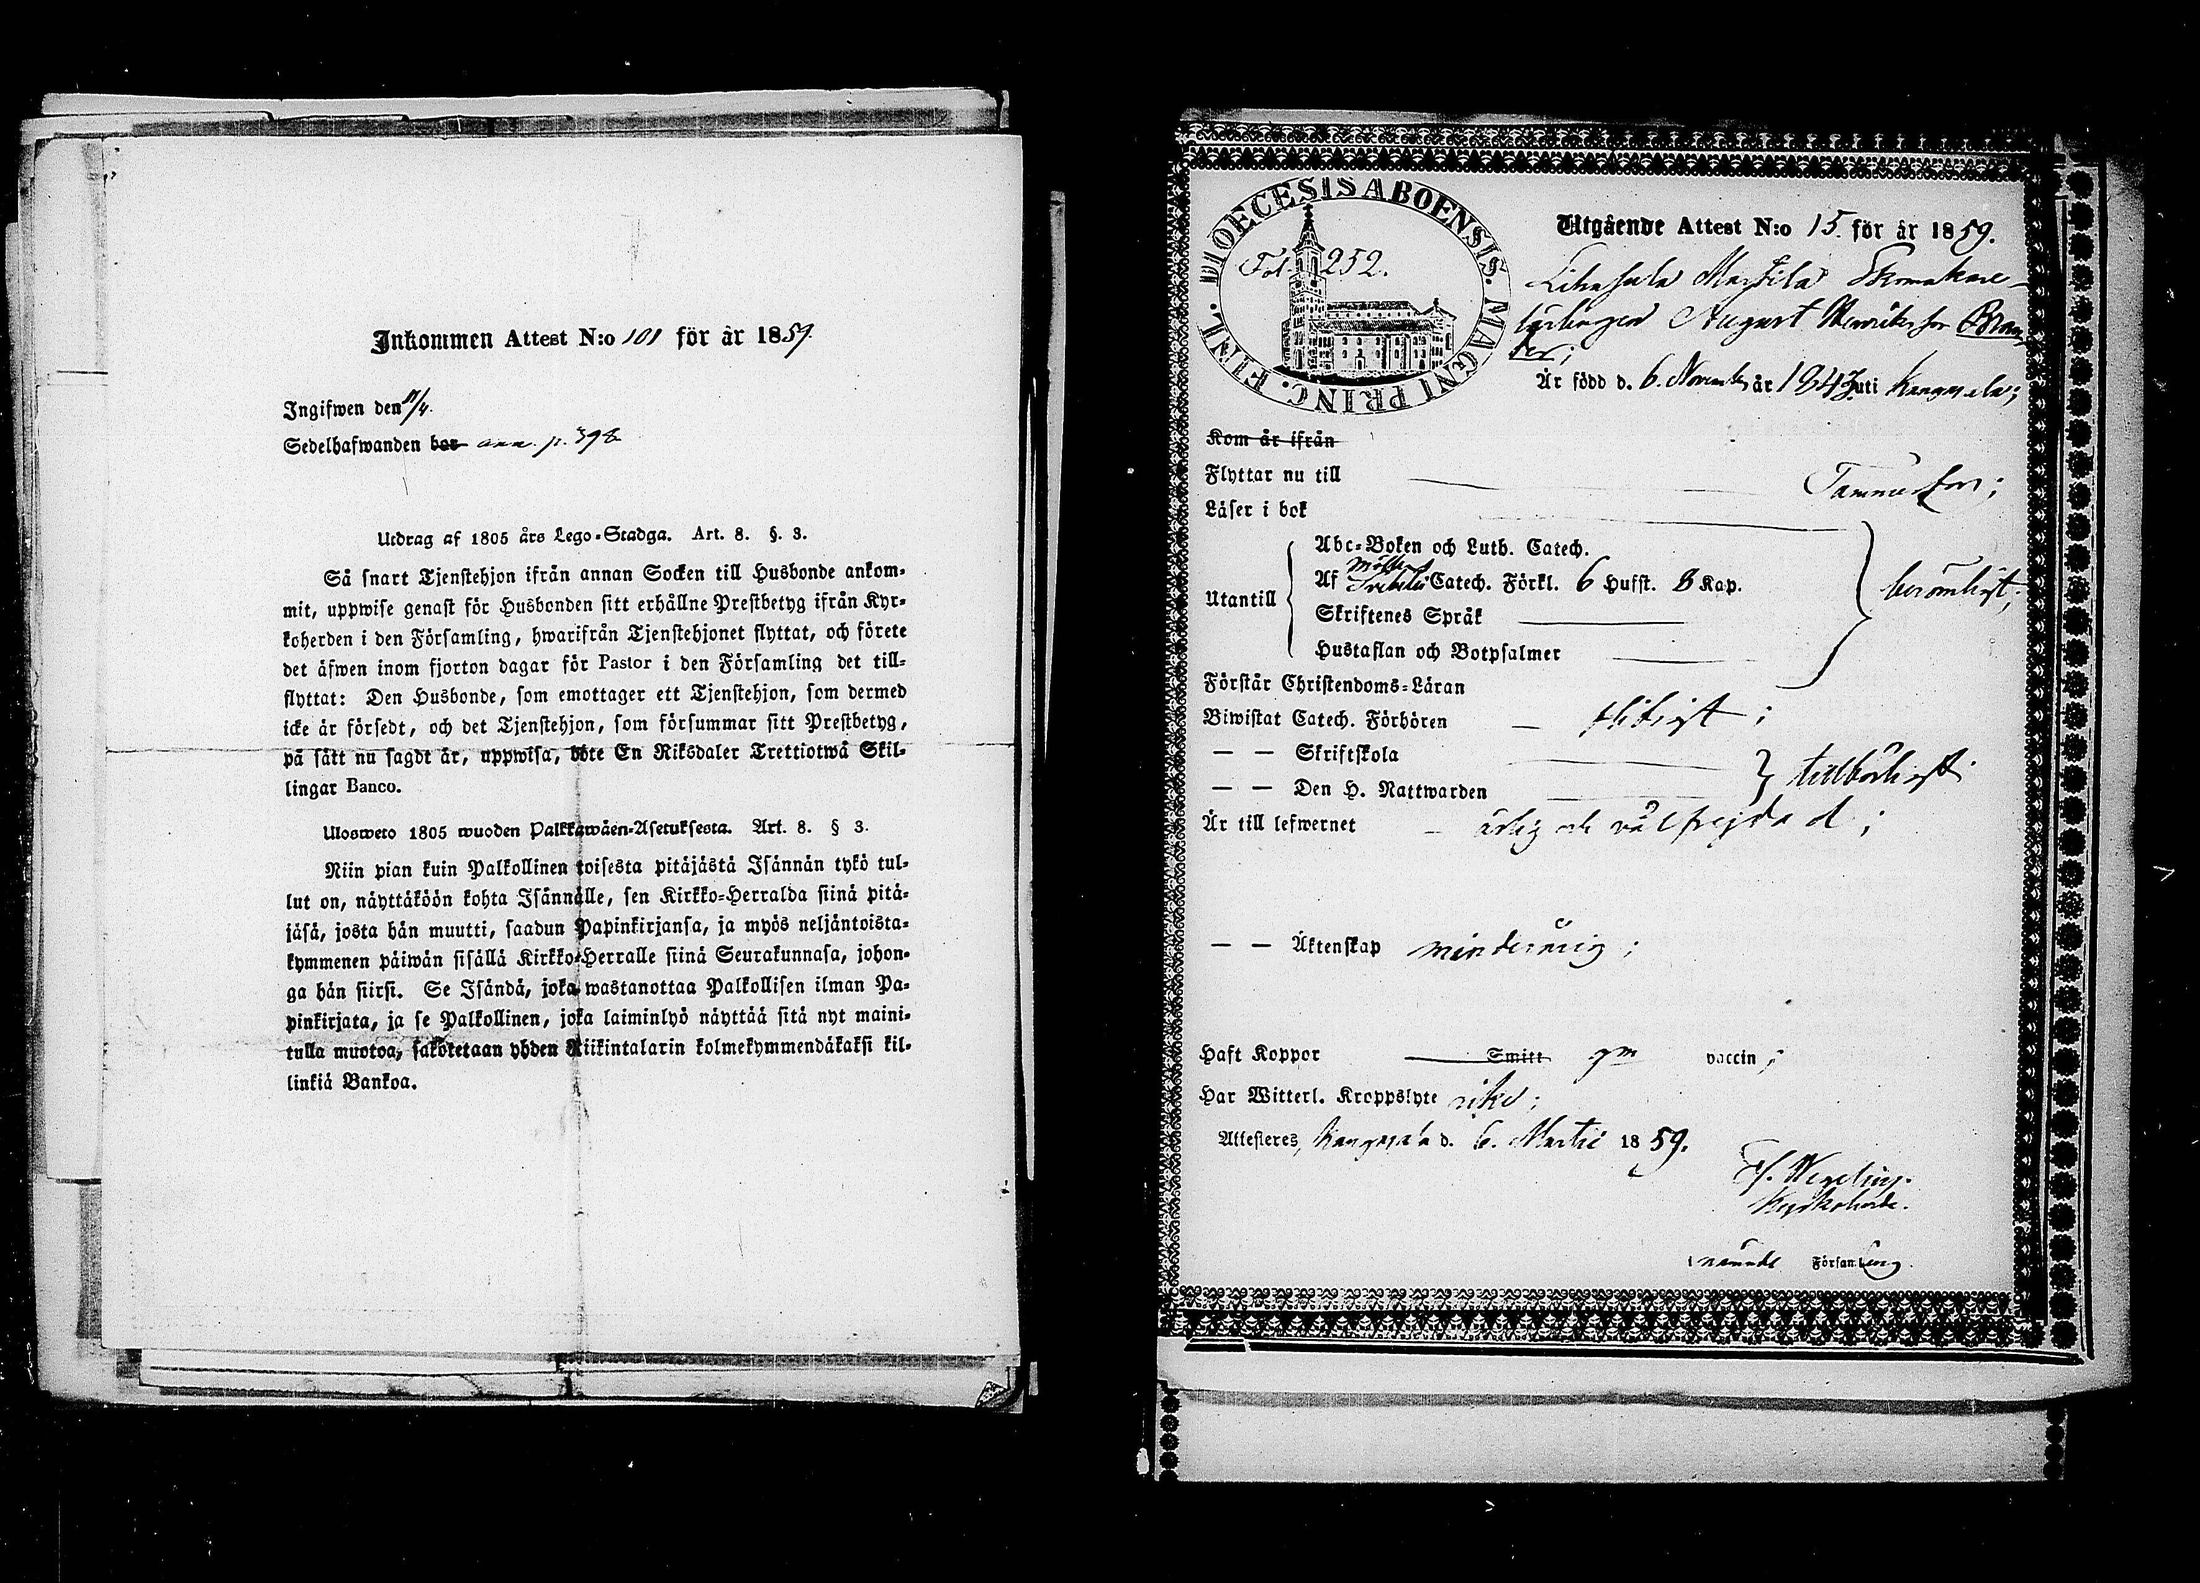 Inkommen Attest N:o 101 för år 1859.
Ingifwen den 11/4.
Sedelhafwanden bor ann. p. 398
Utdrag af 1805 års Lego-Stadga. Art. 8. §. 3.
Så snart Tjenstehjon ifrån annan Socken till Husbonde ankom-
mit, uppwise genast för Husbonden sitt erhållne Prestbetyg ifrån Kyr-
koherden i den Församling, hwarifrån Tjenstehjonet flyttat, och förete
det äfwen inom fjorton dagar för Pastor i den Församling det till-
flyttat: Den Husbonde, som emottager ett Tjenstehjon, som dermed
icke är försedt, och det Tjenstehjon, som försummar sitt Prestbetyg,
på sätt nu sagdt är, uppwisa, böte En Riksdaler Trettiotwå Skil-
lingar Banco.
Ulosweto 1805 wuoden Palkkawäen-Asetuksesta. Art. 8. § 3.
Niin pian kuin Palkollinen toisesta pitäjästä Isännän tykö tul-
lut on, näyttäköön kohta Isännälle, sen Kirkko-Herralda siinä pitä-
jäsä, josta hän muutti, saadun Papinkirjansa, ja myös neljäntoista-
kymmenen päiwän sisällä Kirkko-Herralle siinä Seurakunnasa, johon-
ga hän siirsi. Se Isändä, joka wastanottaa Palkollisen ilman Pa-
pinkirjata, ja se Palkollinen, joka laiminlyö näyttää sitä nyt maini-
tulla muotoa, sakotetaan yhden Riikintalarin kolmekymmendäkaksi kil-
linkiä Bankoa.
DIOECESIS ABOENSIS. MAGNI PRINC. FINL.
Fol. 252.
Utgående Attest N:o 15. för år 1859.
Lihasula Marttila Skomakare-
lärlingen August Henriksson Bran-
der;
Är född d. 6. November år 1843 uti Kangasala;
Kom år ifrån
Flyttar nu till Tammerfors;
Läser i bok
Abc-Boken och Luth. Catech.
Utantill Af Svebelii Catech. Förkl. 6 Hufst. 8 Kap. berömligt;
Skriftenes Språk
Hustaflan och Botpsalmer
Förstår Christendoms-Läran
Biwistat Catech. Förhören flitigt;
— — Skriftskola
— — Den H. Nattwarden tillbörligt;
Är till lefwernet ärlig och välfrejdad;
— — Äktenskap minderårig;
Haft Koppor Smitt gm vaccin;
Har Witterl. Kroppslyte icke;
Attesteres, Kangasala d. 6. Martii 1859.
Wegelius.
Kyrkoherde.
Församling.